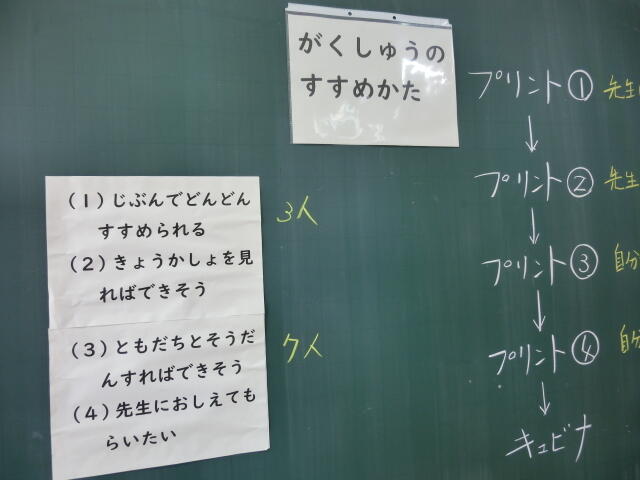 がくしゅうの
すすめかた
(1)じぶんでどんどん
すすめられる
(2)きょうかしょを見
ればできそう
3人
(3)ともだちとそうだ
んすればできそう
(4)先生におしえても
らいたい
7人
プリント① 先生
↓
プリント② 先生
↓
プリント③ 自分
↓
プリント④ 自分
↓
キュビナ